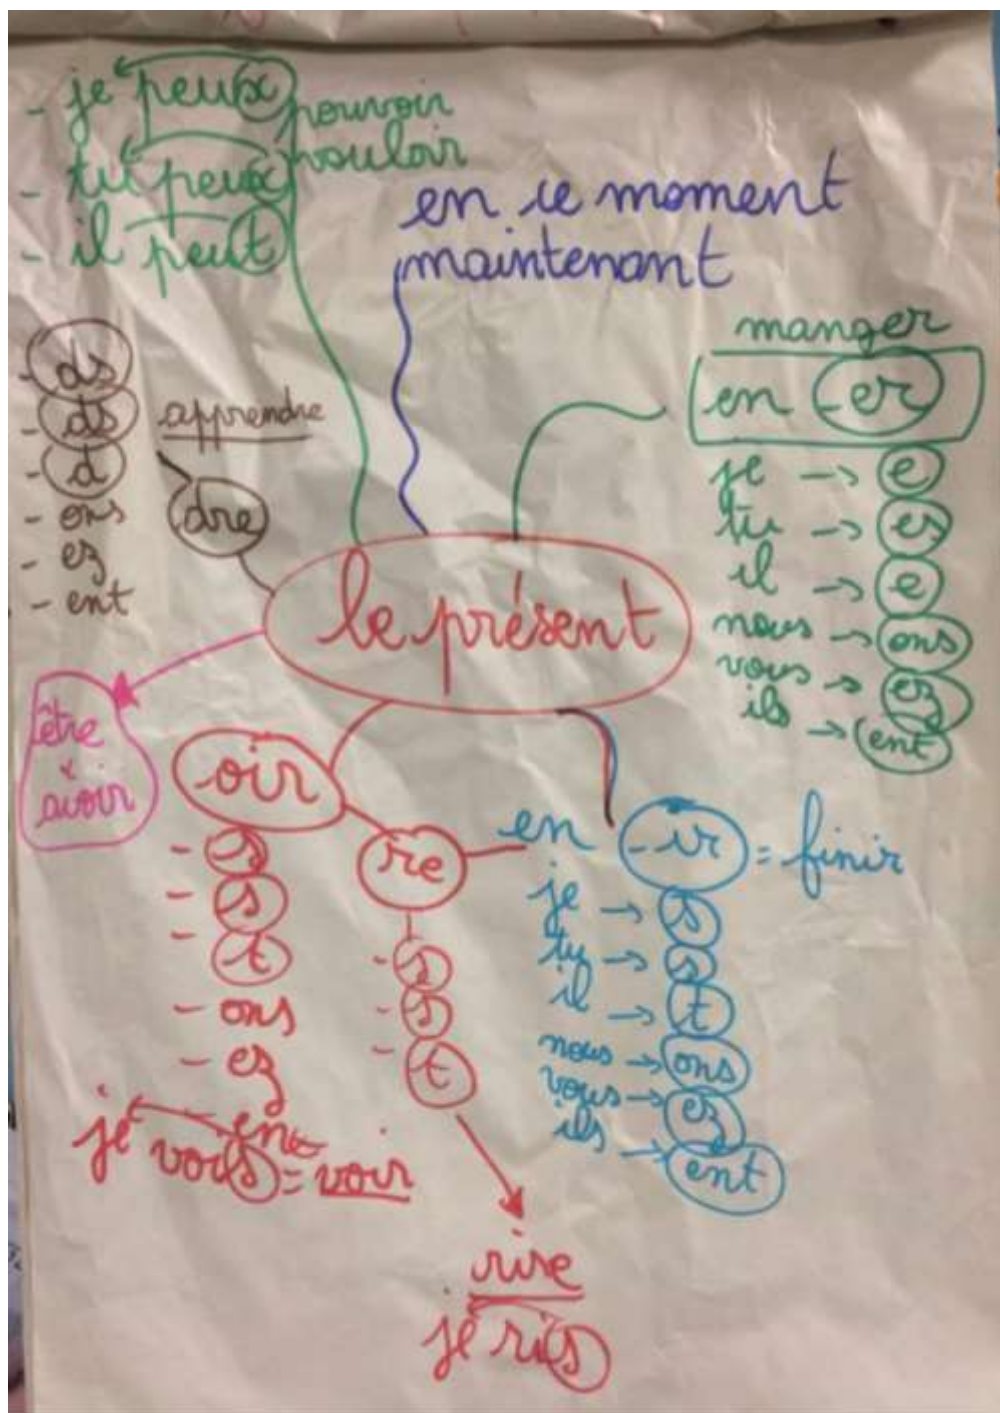 - je peux
- tu peux
- il peut
pouvoir
vouloir
en ce moment
maintenant
manger
en -er
je → e
tu → es
il → e
nous → ons
vous → ez
ils → ent
- ds
- ds
- d
- ons
- ez
- ent
apprendre
dre
le présent
être
avoir
oir
- s
- s
- t
- ons
- ez
ent
je vois = voir
re
- s
- s
- t
rire
je ris
en -ir = finir
je → s
tu → s
il → t
nous → ons
vous → ez
ils → ent